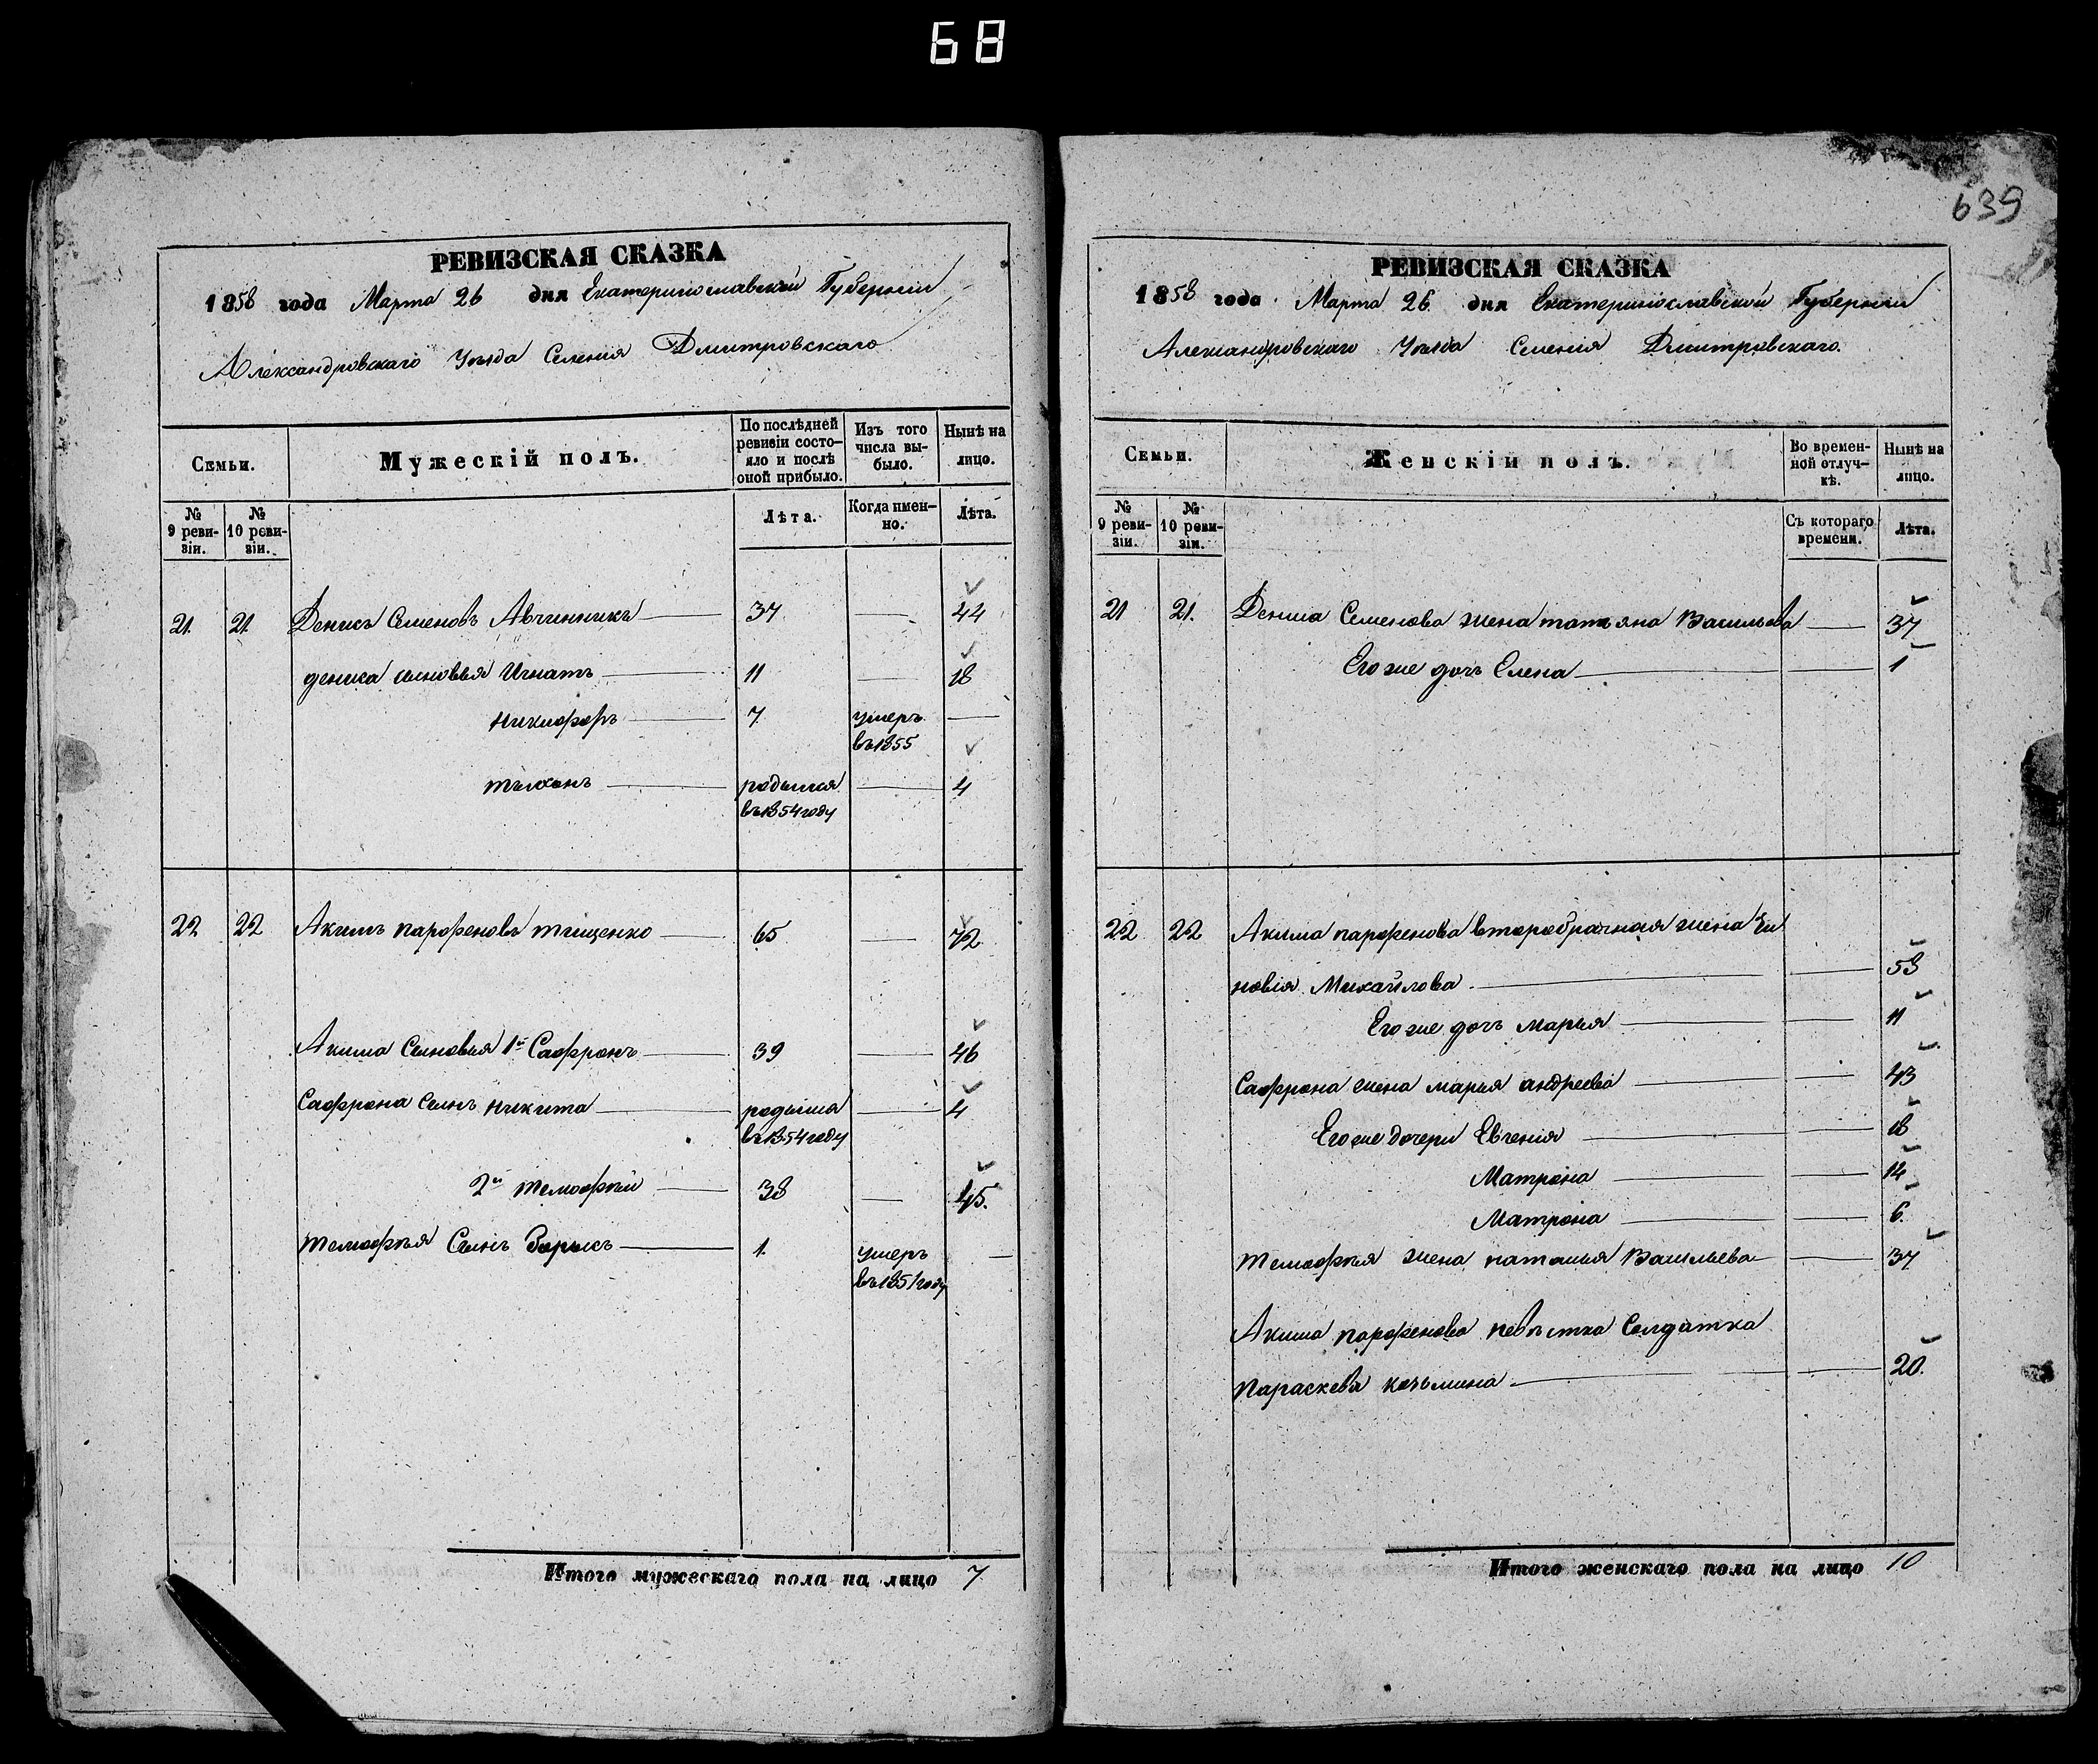 68
639
РЕВИЗСКАЯ СКАЗКА
1858 года Марта 26 дня Екатеринославской Губернии
Александровскаго Уѣзда Селения Дмитровскаго
Семьи.
Мужескій полъ.
По послѣдней ревизіи состо-яло и послѣ оной прибыло.
Изъ того числа вы-было.
Нынѣ на лицо.
№ 9 реви-зіи.
№ 10 реви-зіи.
Лѣта.
Когда имен-но.
Лѣта.
21. 21. Денисъ Семеновъ Авчинникъ 37 44
дениса сыновья Игнатъ 11 18
никифоръ 7 умеръ въ 1855
тихонъ родился въ 1854 году 4
22 22 Акимъ парфеновъ тищенко 65 72
Акима Сыновья 1й Сафронъ 39 46
Сафрона Сынъ никита родился въ 1854 году 4
2й тимофей 38 45.
тимофея Сынъ борисъ 1. умеръ въ 1851 году
Итого мужескаго пола на лицо 7
РЕВИЗСКАЯ СКАЗКА
1858 года Марта 26. дня Екатеринославской Губернии
Александровскаго Уѣзда Селения Дмитровскаго.
Семьи.
Женскій полъ.
Во времен-ной отлуч-кѣ.
Нынѣ на лицо.
№ 9 реви-зіи.
№ 10 реви-зіи.
Съ котораго времени.
Лѣта.
21 21. Дениса Семенова жена татьяна Васильева 37
Его же дочь Елена 1
22 22 Акима парфенова второбрачная жена Зи
новія Михайлова 58
Его же дочь марья 11
Сафрона жена марья андреева 43
Его же дочери Евгения 18
Матрона 14
Матрона 6.
тимофея жена наталья Васильева 37
Акима парфенова невѣстка Солдатка
параскева козьмина 20.
Итого женскаго пола на лицо 10